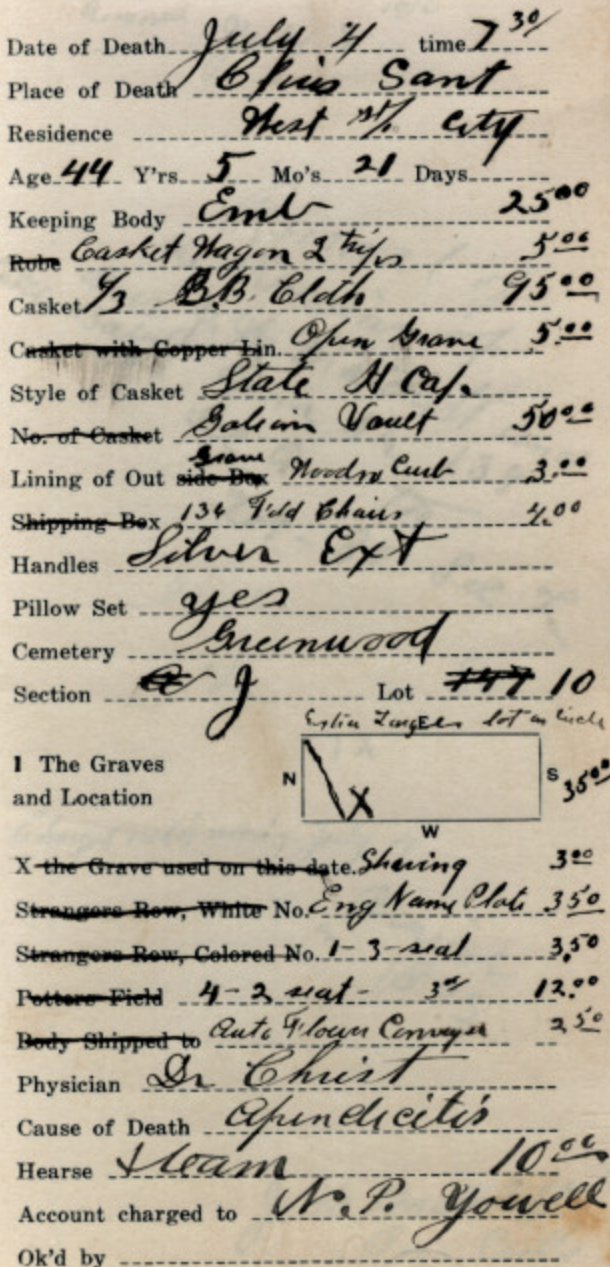 Date of Death July 4 time 7 30/
Place of Death Sant
Residence West st/. City
Age 44 Y'rs 5 Mo's 21 Days
Keeping Body Emb 25 00
Robe Casket Wagon 2 trips 5 00
Casket 6/3 B.B. Cloth 95 00
Casket with Copper Lin. Open Grave 5.00
Style of Casket State H Cap.
No. of Casket Vault 50 00
Grave
Lining of Out side Box Curb 3.00
Shipping Box 136 Fold Chairs 4.00
Handles Silver Ext
Pillow Set yes
Cemetery Greenwood
Section J Lot 147 10
lot on
E
1 The Graves
and Location
N S 35 00
X
W
X the Grave used on this date. Shaving 3 00
Strangers Row, White No. Eng Name Plate 3 50
Strangers Row, Colored No. 1-3-seat 3,50
Potters Field 4-2 seat- 12.00
Body Shipped to Auto Flower Conveyer 2 50
Physician Dr Christ
Cause of Death Apendicitis
Hearse team 10 00
Account charged to N.P. Yowell
Ok'd by